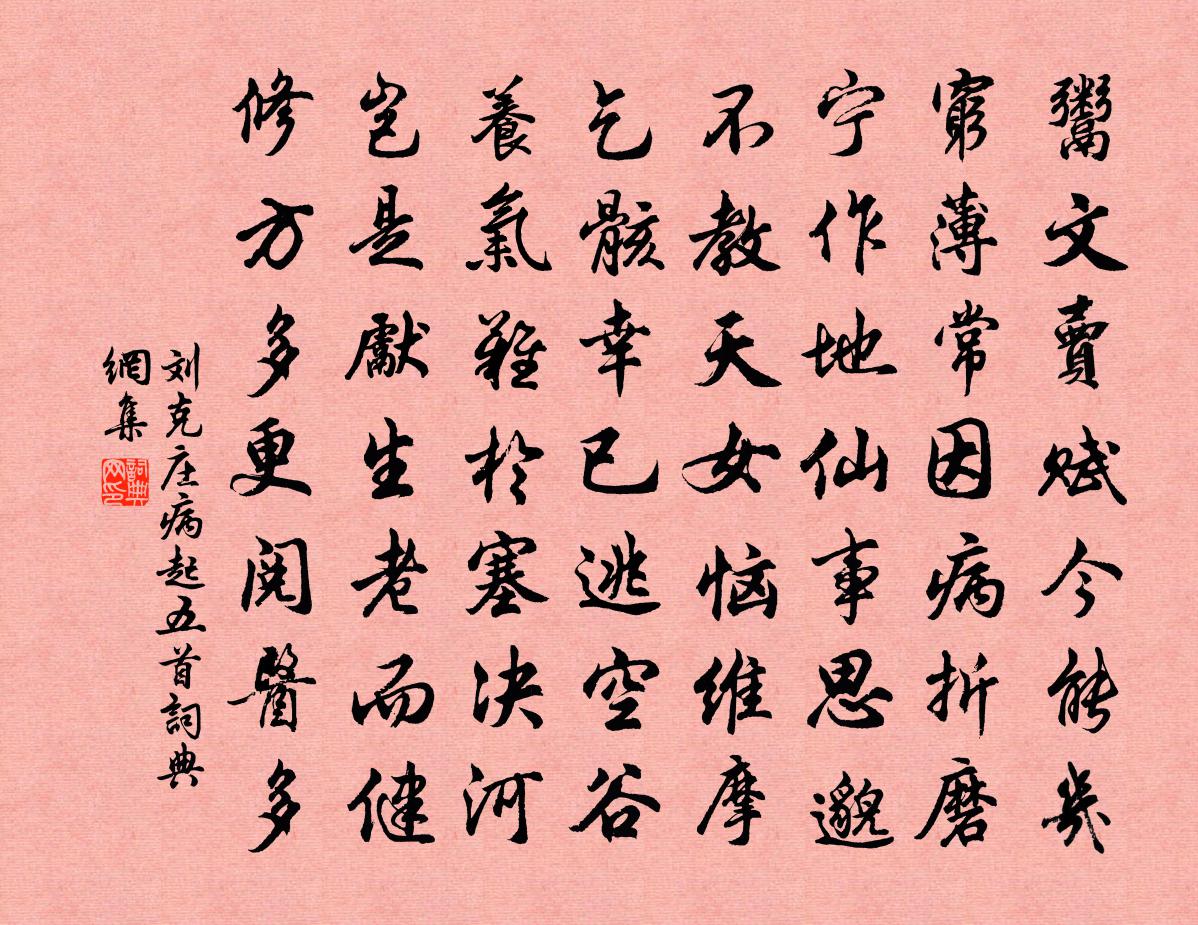 鬻文賣賦今能幾
窮薄常因病折磨
宁作地仙事思邈
不教天女恼维摩
乞骸幸已逃空谷
養氣難於塞决河
岂是獻生老而健
修方多更閱醫多
刘克庄病起五首詞典
網集
詞典网印